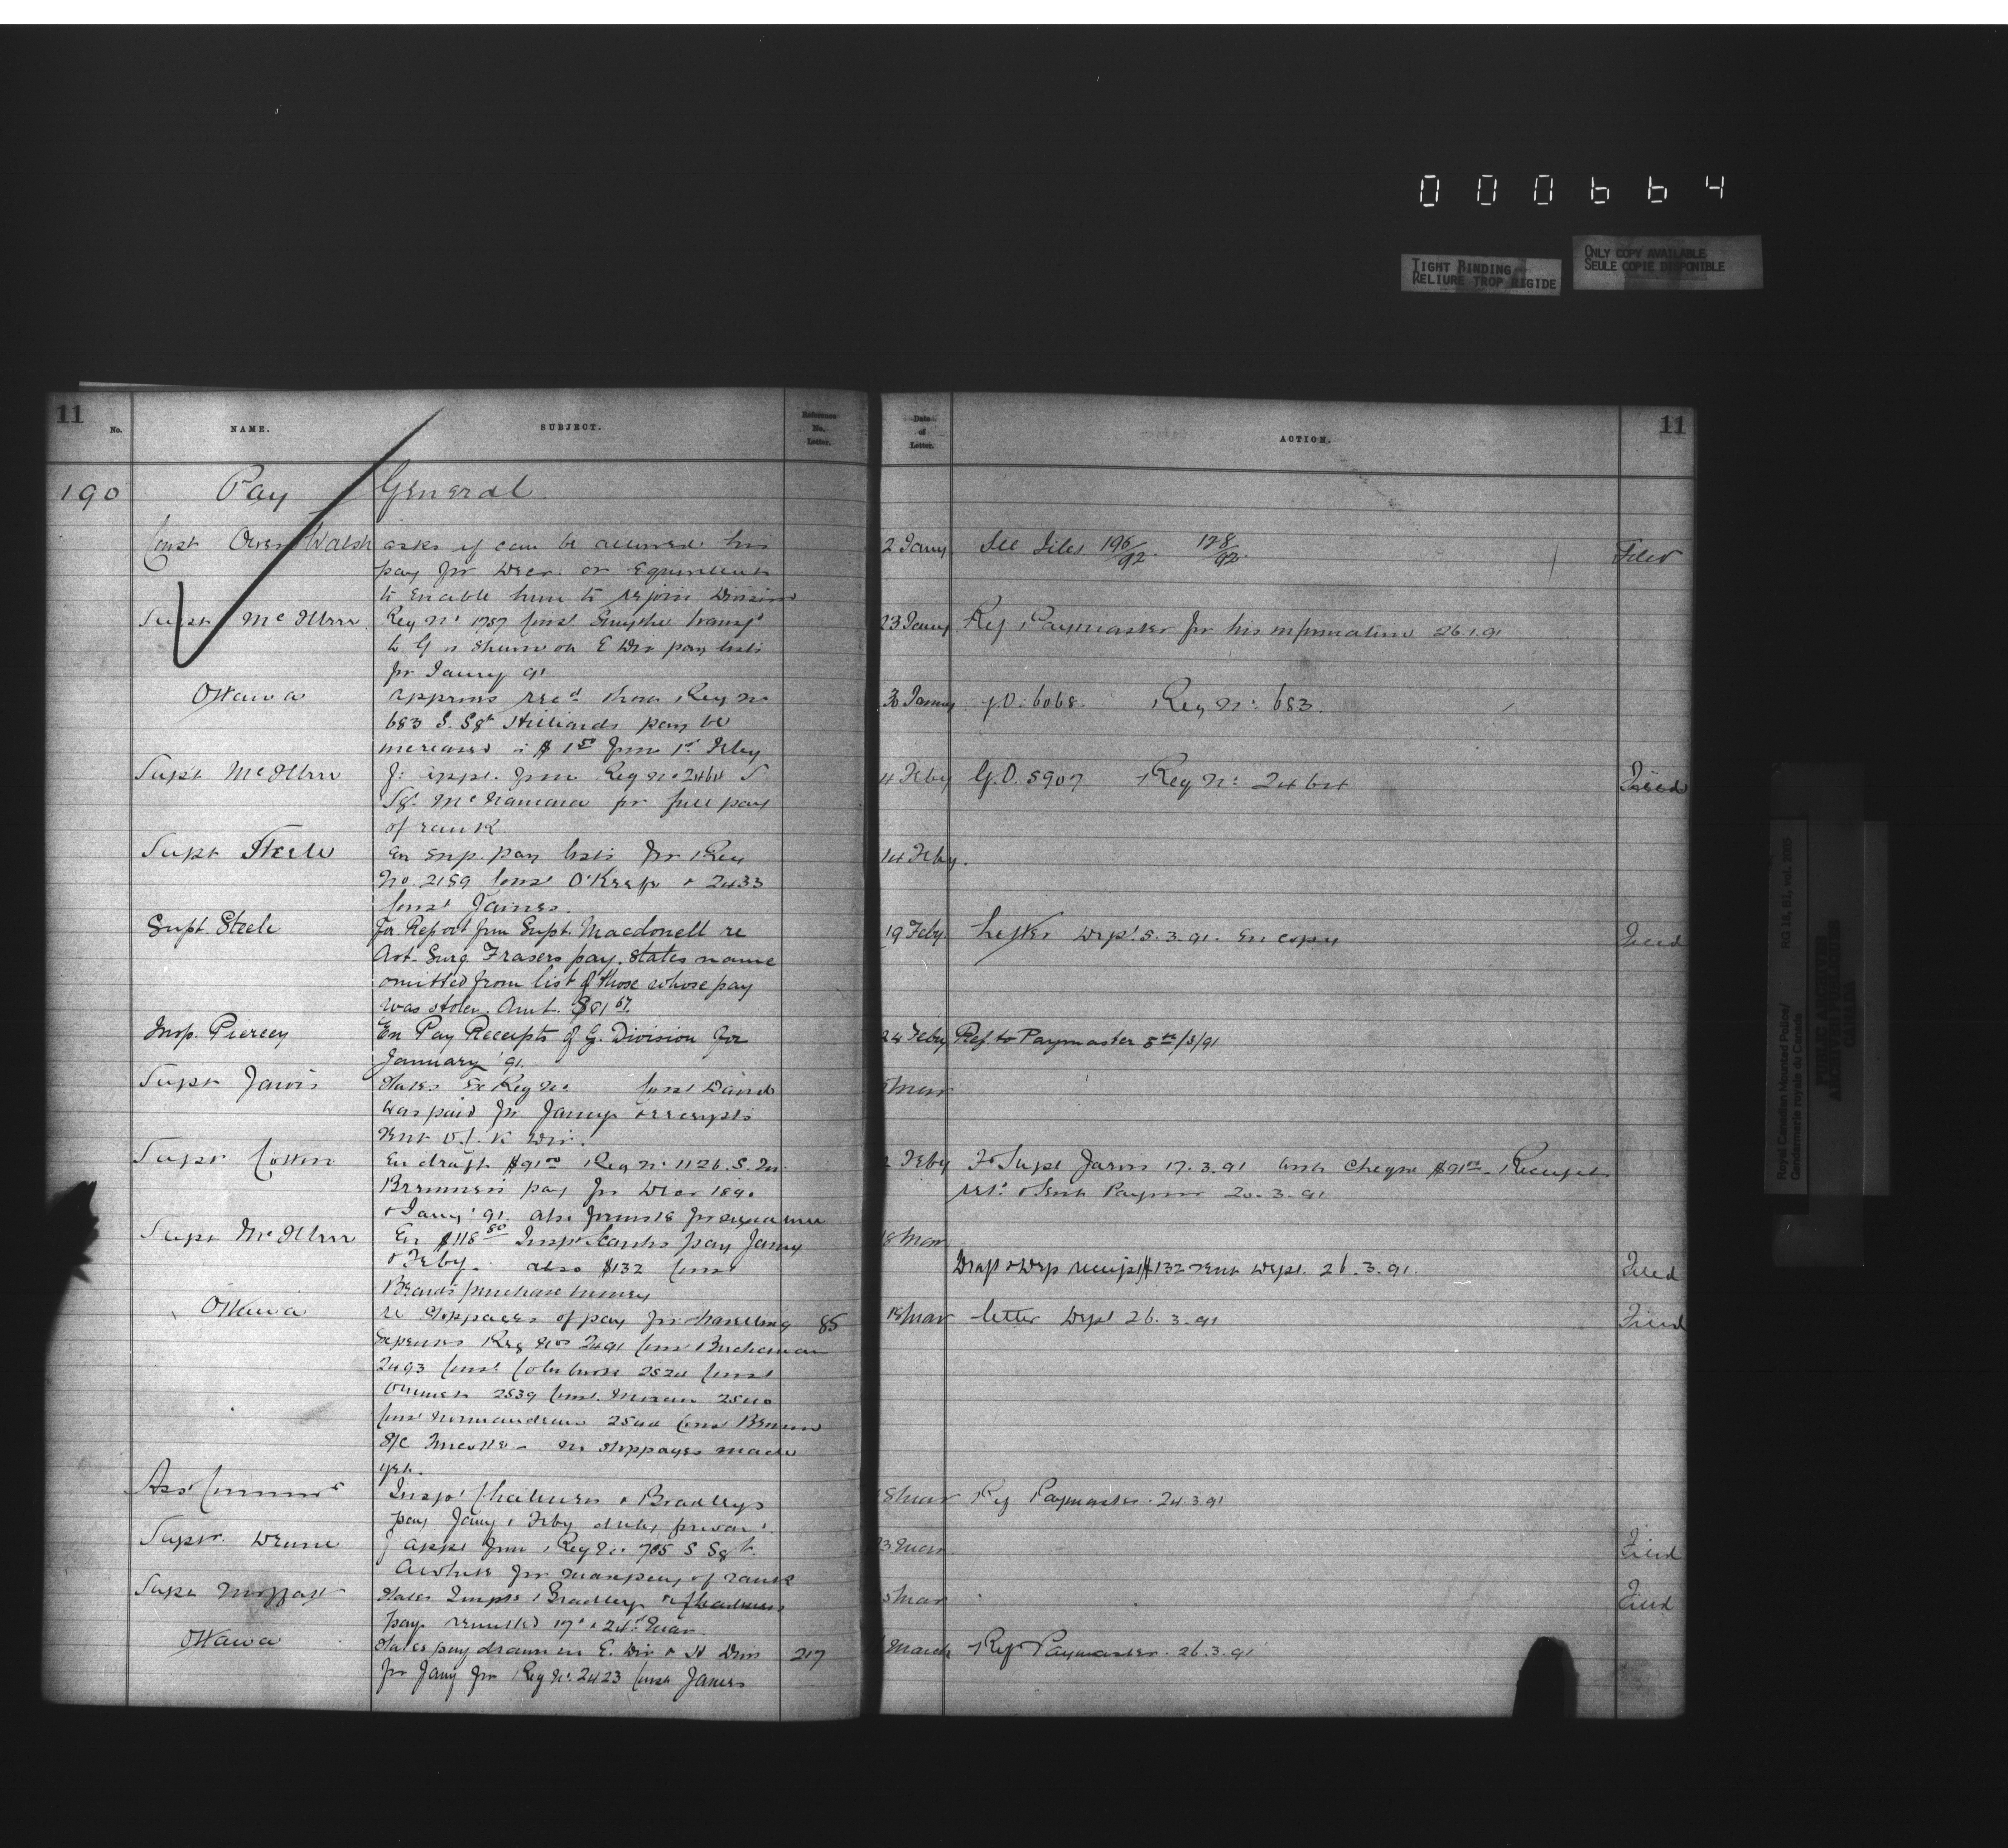 000664
TIGHT BINDING
RELIURE TROP RIGIDE
ONLY COPY AVAILABLE
SEULE COPIE DISPONIBLE
11
No.
NAME.
SUBJECT.
Reference
No.
Letter.
Date
of
Letter.
ACTION.
11
190 Pay General
Const Owen Walsh asks if can be allowed his 2 Jany See Files 196/92. 128/92. Filed
pay for Decr. or Equivalent
to enable him to rejoin Division
Supt McIllree Reg No 1757 Const Smythe transfd 23 Jany Ref Paymaster for his information 26.1.91
to G is shewn on E Div pay lists
for Jany 91
Ottawa approves recd that Reg no 30 Jany G.O. 6068. Reg No: 683.
683 S. Sgt Hilliards pay be
increased to $1.50 from 1st Feby
Supt McIllree appl. from Reg No 2464 S 4 Feby G.O. 5907 Reg No: 2464 Filed
Sgt McNamara for full pay
of rank
Supt Steele En sup. pay lists for Reg 14 Feby.
No. 2159 Const O'Keefe & 2433
Const James.
Supt. Steele For Report from Supt. Macdonell re 19 Feby. Letter Dept. 5.3.91. En copy Filed
Act. Surg. Frasers pay. States name
omitted from list of those whose pay
was stolen. Amt. $81 67
Insp. Piercey En Pay Receipts of G. Division for 24 Feby Ref to Paymaster 5th/3/91
January '91.
Supt Jarvis States Ex Reg No Const David Mar
was paid for Jany & receipts
sent O.C. K Div.
Supt Cotton En draft $91.00 Reg No 1126 S. Feby To Supt Jarvis 17.3.91 with Cheque $91.00 Receipt
pay for Decr 1890 sent 20.3.91
& Jany '91. also
Supt McIllree En $118 50 Inspr pay Jany 18 Mar
& Feby. also $132 Const Draft & Dep receipt $132 sent Dept. 26.3.91. Filed
purchase money
Ottawa re stoppages of pay for travelling 85 18 Mar letter Dept 26.3.91 Filed
expenses Reg Nos 2491 Const Buchanan
2493 Const 2524 Const
2539 Const. 2540
Const 2544 Const
no stoppages made
yet.
Asst Commr Inspr & Bradleys 18 Mar Ref Paymaster. 24.3.91
pay Jany & Feby
Supt. Deane appl from Reg No. 705 S Sgt. 23 Mar Filed
for pay of rank
Supt Moffatt States Insps Bradley & Mar Filed
pay remitted 17th & 24th Mar.
Ottawa States pay drawn in E. Div & H Divn 217 March Ref Paymaster. 26.3.91
for Jany for Reg No. 2423 Const James
Royal Canadian Mounted Police/
Gendarmerie royale du Canada
RG 18, B1, vol. 2005
PUBLIC ARCHIVES
ARCHIVES PUBLIQUES
CANADA